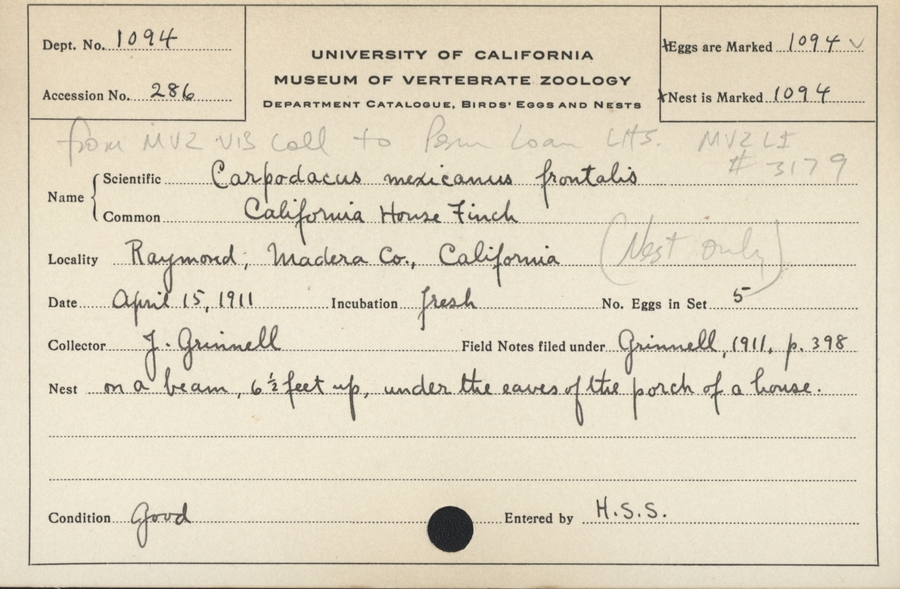 Dept. No. 1094
Accession No. 286
UNIVERSITY OF CALIFORNIA
MUSEUM OF VERTEBRATE ZOOLOGY
DEPARTMENT CATALOGUE, BIRDS' EGGS AND NESTS
Eggs are Marked 1094 ✓
Nest is Marked 1094
from MVZ VIS Coll to Perm Loan LHS. MVZ LI
# 3179
Name
Scientific Carpodacus mexicanus frontalis
Common California House Finch
Locality Raymond, Madera Co., California (Nest only)
Date April 15, 1911 Incubation fresh No. Eggs in Set 5
Collector J. Grinnell Field Notes filed under Grinnell, 1911, p. 398
Nest on a beam, 6 1/2 feet up, under the eaves of the porch of a house.
Condition Good Entered by H.S.S.